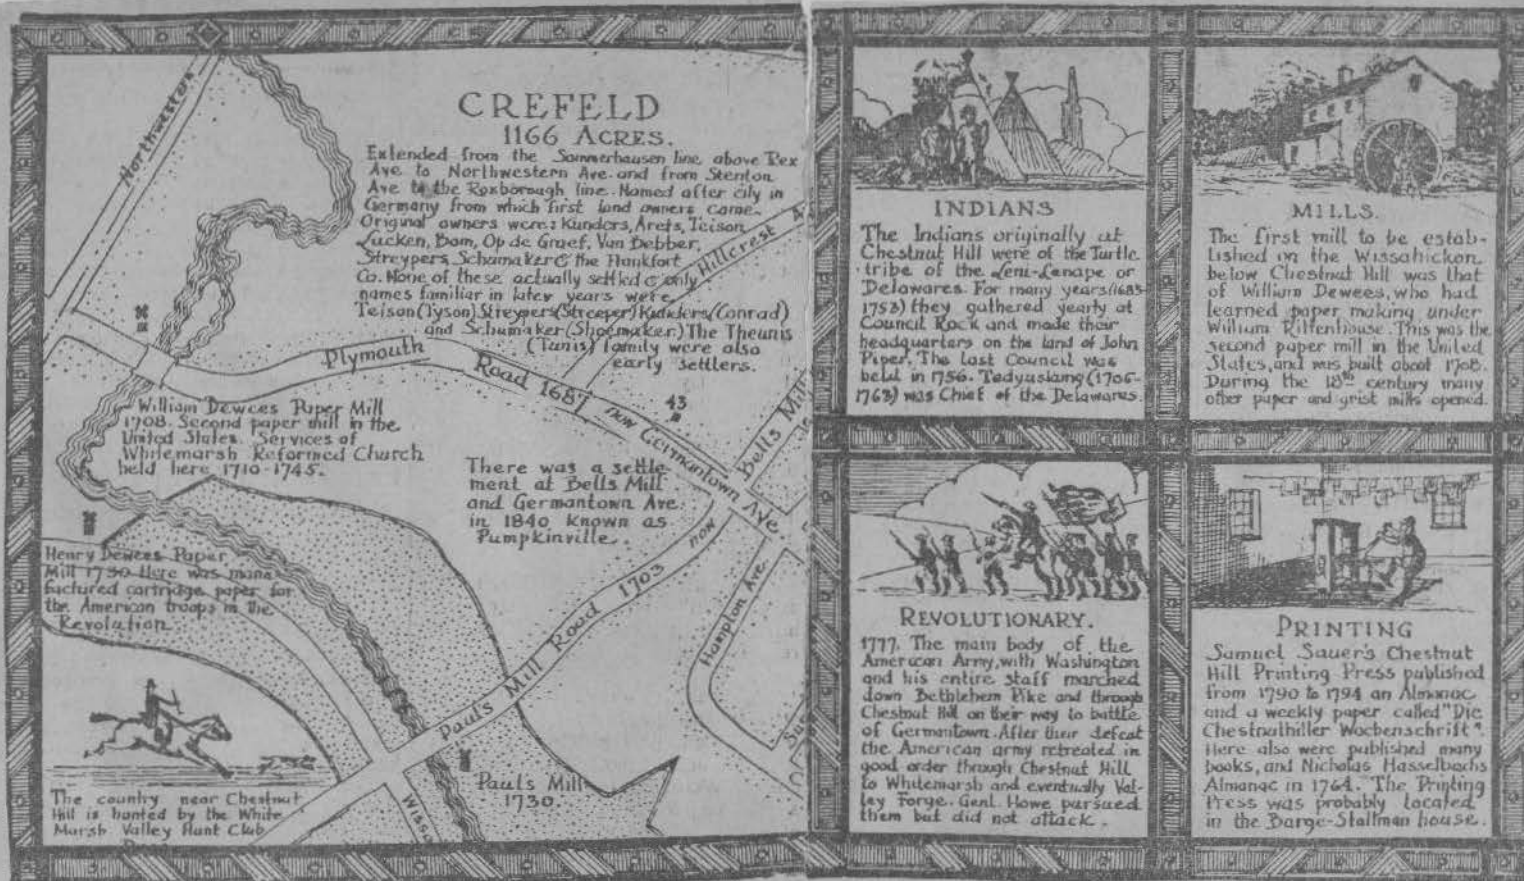 Northwestern
CREFELD
1166 ACRES.
Extended from the Sommerhausen line above Rex
Ave to Northwestern Ave and from Stenton
Ave to the Roxborough line. Named after city in
Germany from which first land owners came.
Original owners were: Kunders, Arets, Teison
Lucken, Bom, Op de Graef, Van Bebber,
Streypers, Schumaker & the Frankfort
Co. None of these actually settled & only
names familiar in later years were
Teison (Tyson) Streypers (Streeper) Kunders (Conrad)
and Schumaker (Shoemaker.) The Theunis
(Tunis) family were also
early settlers.
Hillcrest
Plymouth Road 1687 now Germantown Ave
43
Bells Mill
William Dewees Paper Mill
1708. Second paper mill in the
United States. Services of
Whitemarsh Reformed Church
held here 1710-1745.
There was a settle-
ment at Bells Mill
and Germantown Ave.
in 1840 known as
Pumpkinville.
Henry Dewees' Paper
Mill 1730 Here was manu
factured cartridge paper for
the American troops in the
Revolution
Paul's Mill Road 1703 now
Hampton Ave.
Paul's Mill
1730.
Wissa
The country near Chestnut
Hill is hunted by the White
Marsh Valley Hunt Club
INDIANS
The Indians originally at
Chestnut Hill were of the Turtle
tribe of the Leni-Lenape or
Delawares. For many years (1683-
1753) they gathered yearly at
Council Rock and made their
headquarters on the land of John
Piper. The Last Council was
held in 1756. Tedyuskung (1705-
1763) was Chief of the Delawares.
MILLS.
The first mill to be estab-
lished on the Wissahickon
below Chestnut Hill was that
of William Dewees, who had
learned paper making under
William Rittenhouse. This was the
second paper mill in the United
States, and was built about 1708.
During the 18th century many
other paper and grist mills opened.
REVOLUTIONARY.
1777. The main body of the
American Army, with Washington
and his entire staff marched
down Bethlehem Pike and through
Chestnut Hill on their way to battle
of Germantown. After their defeat
the American army retreated in
good order through Chestnut Hill
to Whitemarsh and eventually Val-
ley Forge. Genl. Howe pursued
them but did not attack.
PRINTING
Samuel Sauer's Chestnut
Hill Printing Press published
from 1790 to 1794 an Almanac
and a weekly paper called "Die
Chestnuthiller Wochenschrift".
Here also were published many
books, and Nicholas Hasselbachs
Almanac in 1764. The Printing
Press was probably located
in the Barge-Stallman house.